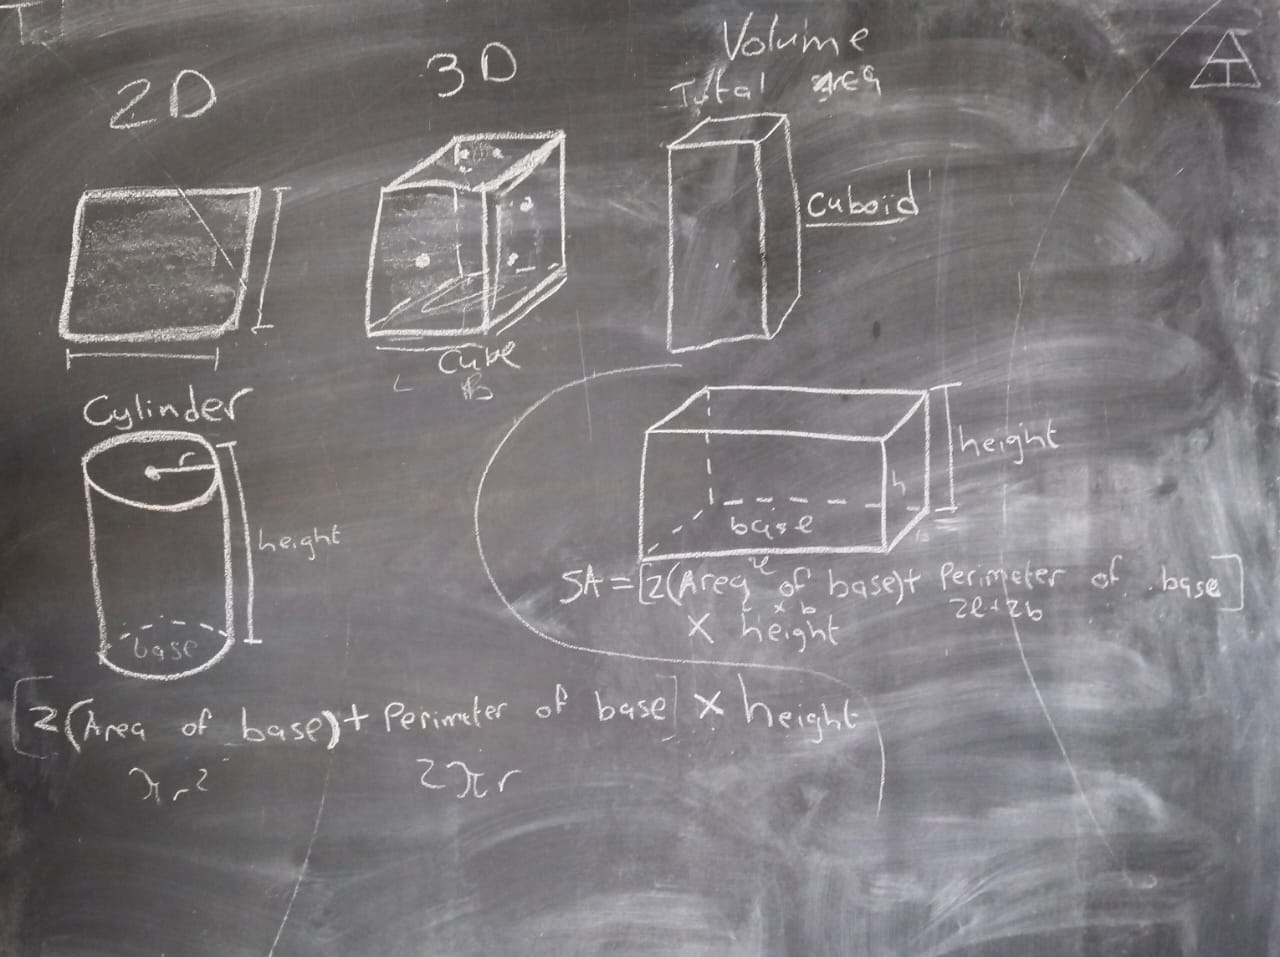 2D
3D
Volume
Total area
Cuboid
Cube
L B
Cylinder
r
height
base
height
h
base
l
SA = [2(Area of base) + Perimeter of base]
l x b 2l + 2b
× height
[2(Area of base) + Perimeter of base] × height
πr² 2πr